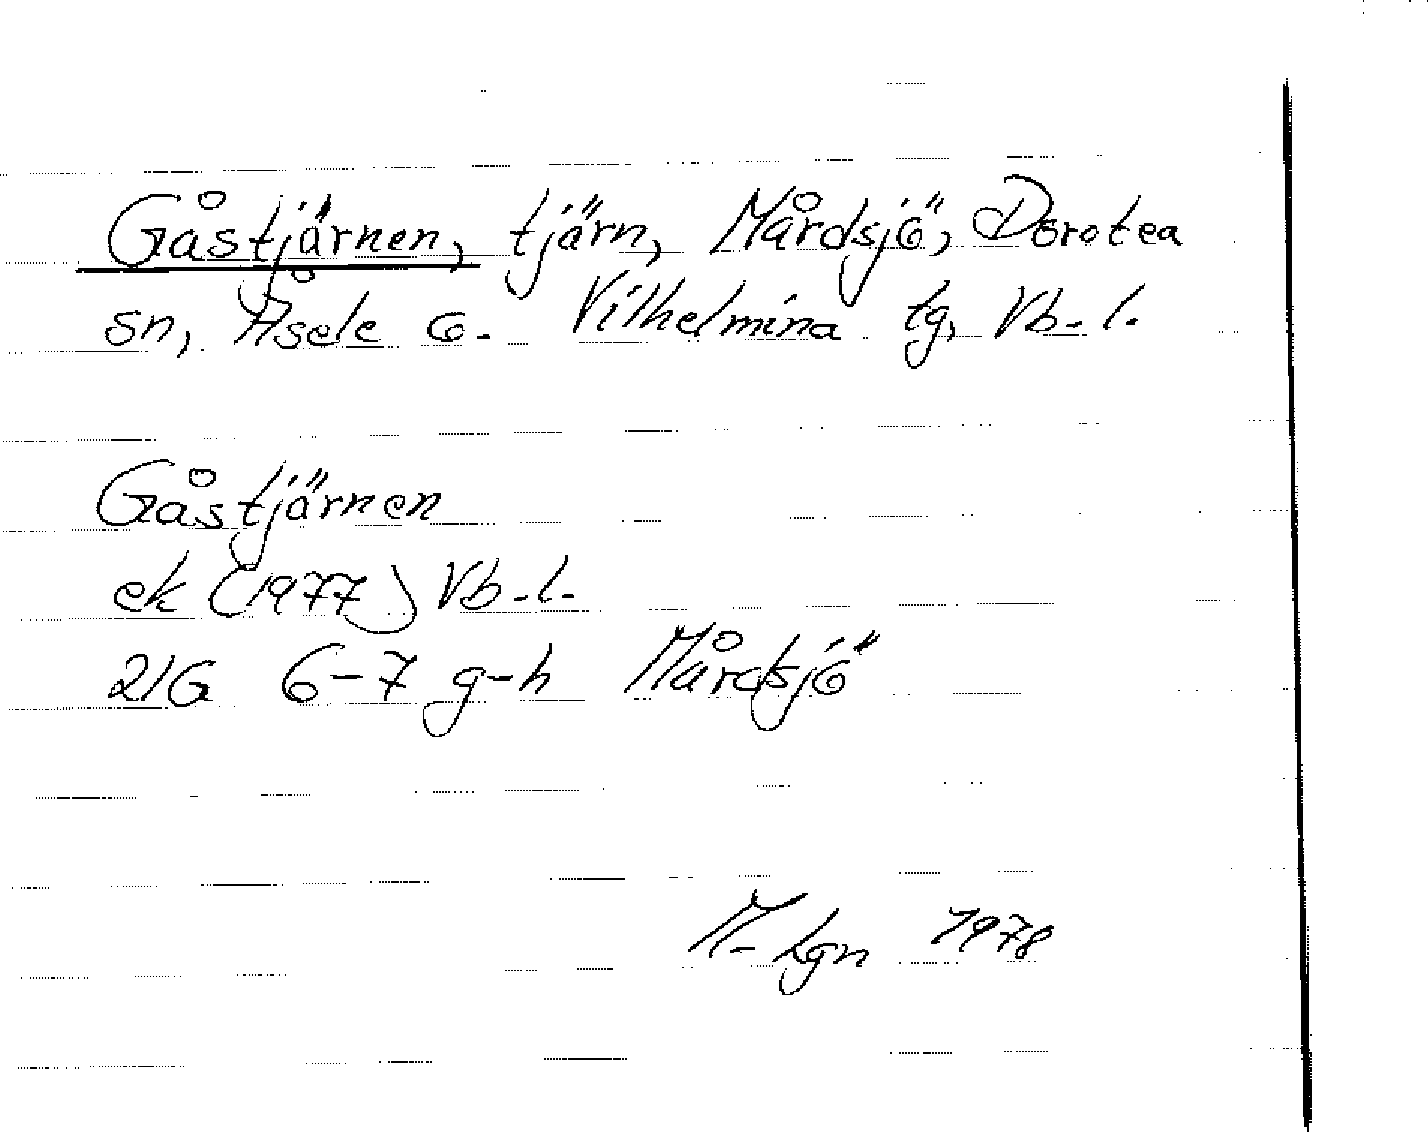 Gåstjärnen, tjärn, Mårdsjö, Dorotea
sn, Åsele G. Vilhelmina tg, Vb-l.
Gåstjärnen
ek (1977) Vb-l.
21G 6-7 g-h Mårdsjö
1978